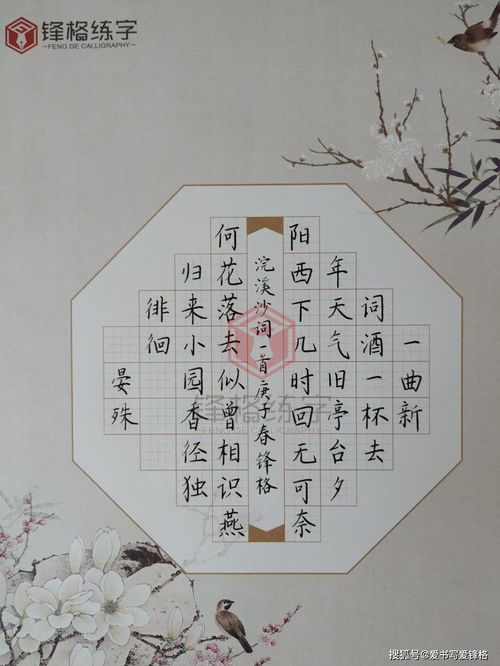 锋格练字
—FENG GE CALLIGRAPHY—
一曲新
词酒一杯去
年天气旧亭台夕
阳西下几时回无可奈
浣溪沙词一首庚子春锋格
何花落去似曾相识燕
归来小园香径独
徘徊
晏殊
锋格练字
搜狐号@爱书写爱锋格